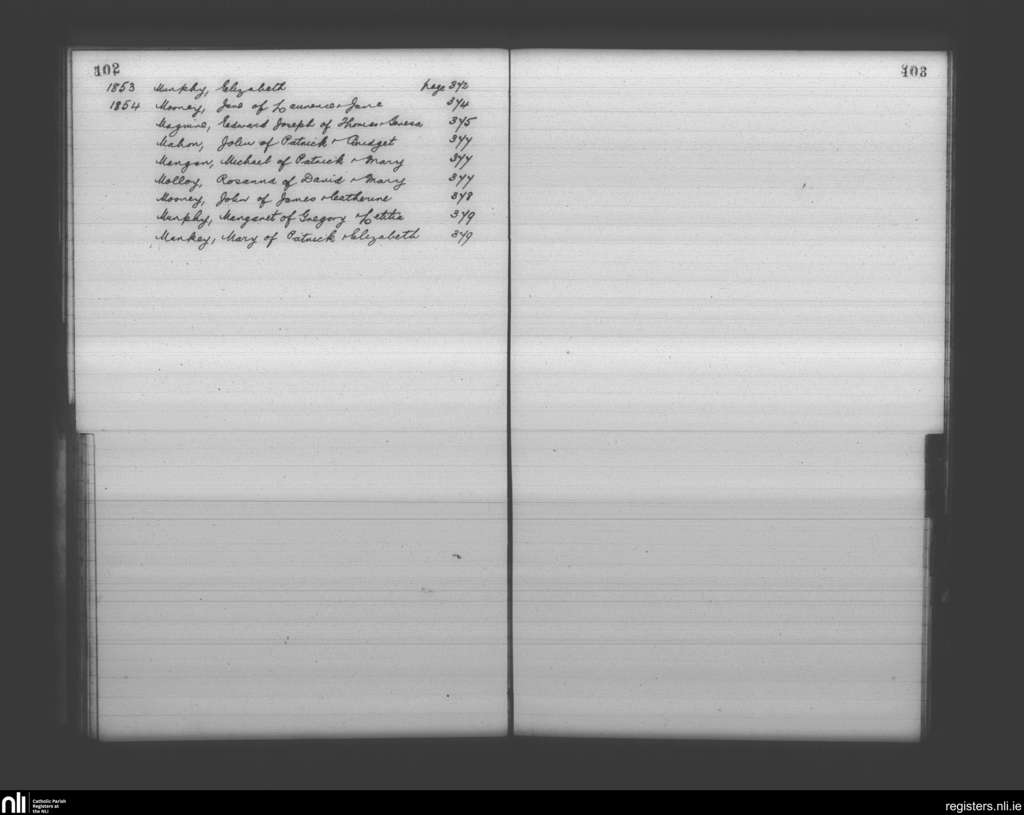 102
1853 Murphy, Elizabeth page 372
1854 Mooney, Jane of Laurence & Jane 374
Maguire, Edward Joseph of Thomas & Teresa 375
Mahon, John of Patrick & Bridget 377
Mangan, Michael of Patrick & Mary 377
Molloy, Rosanna of David & Mary 377
Mooney, John of James & Catherine 378
Murphy, Margaret of Gregory & Letitia 379
Mankey, Mary of Patrick & Elizabeth 379
103
nli
Catholic Parish
Registers at
the NLI
registers.nli.ie